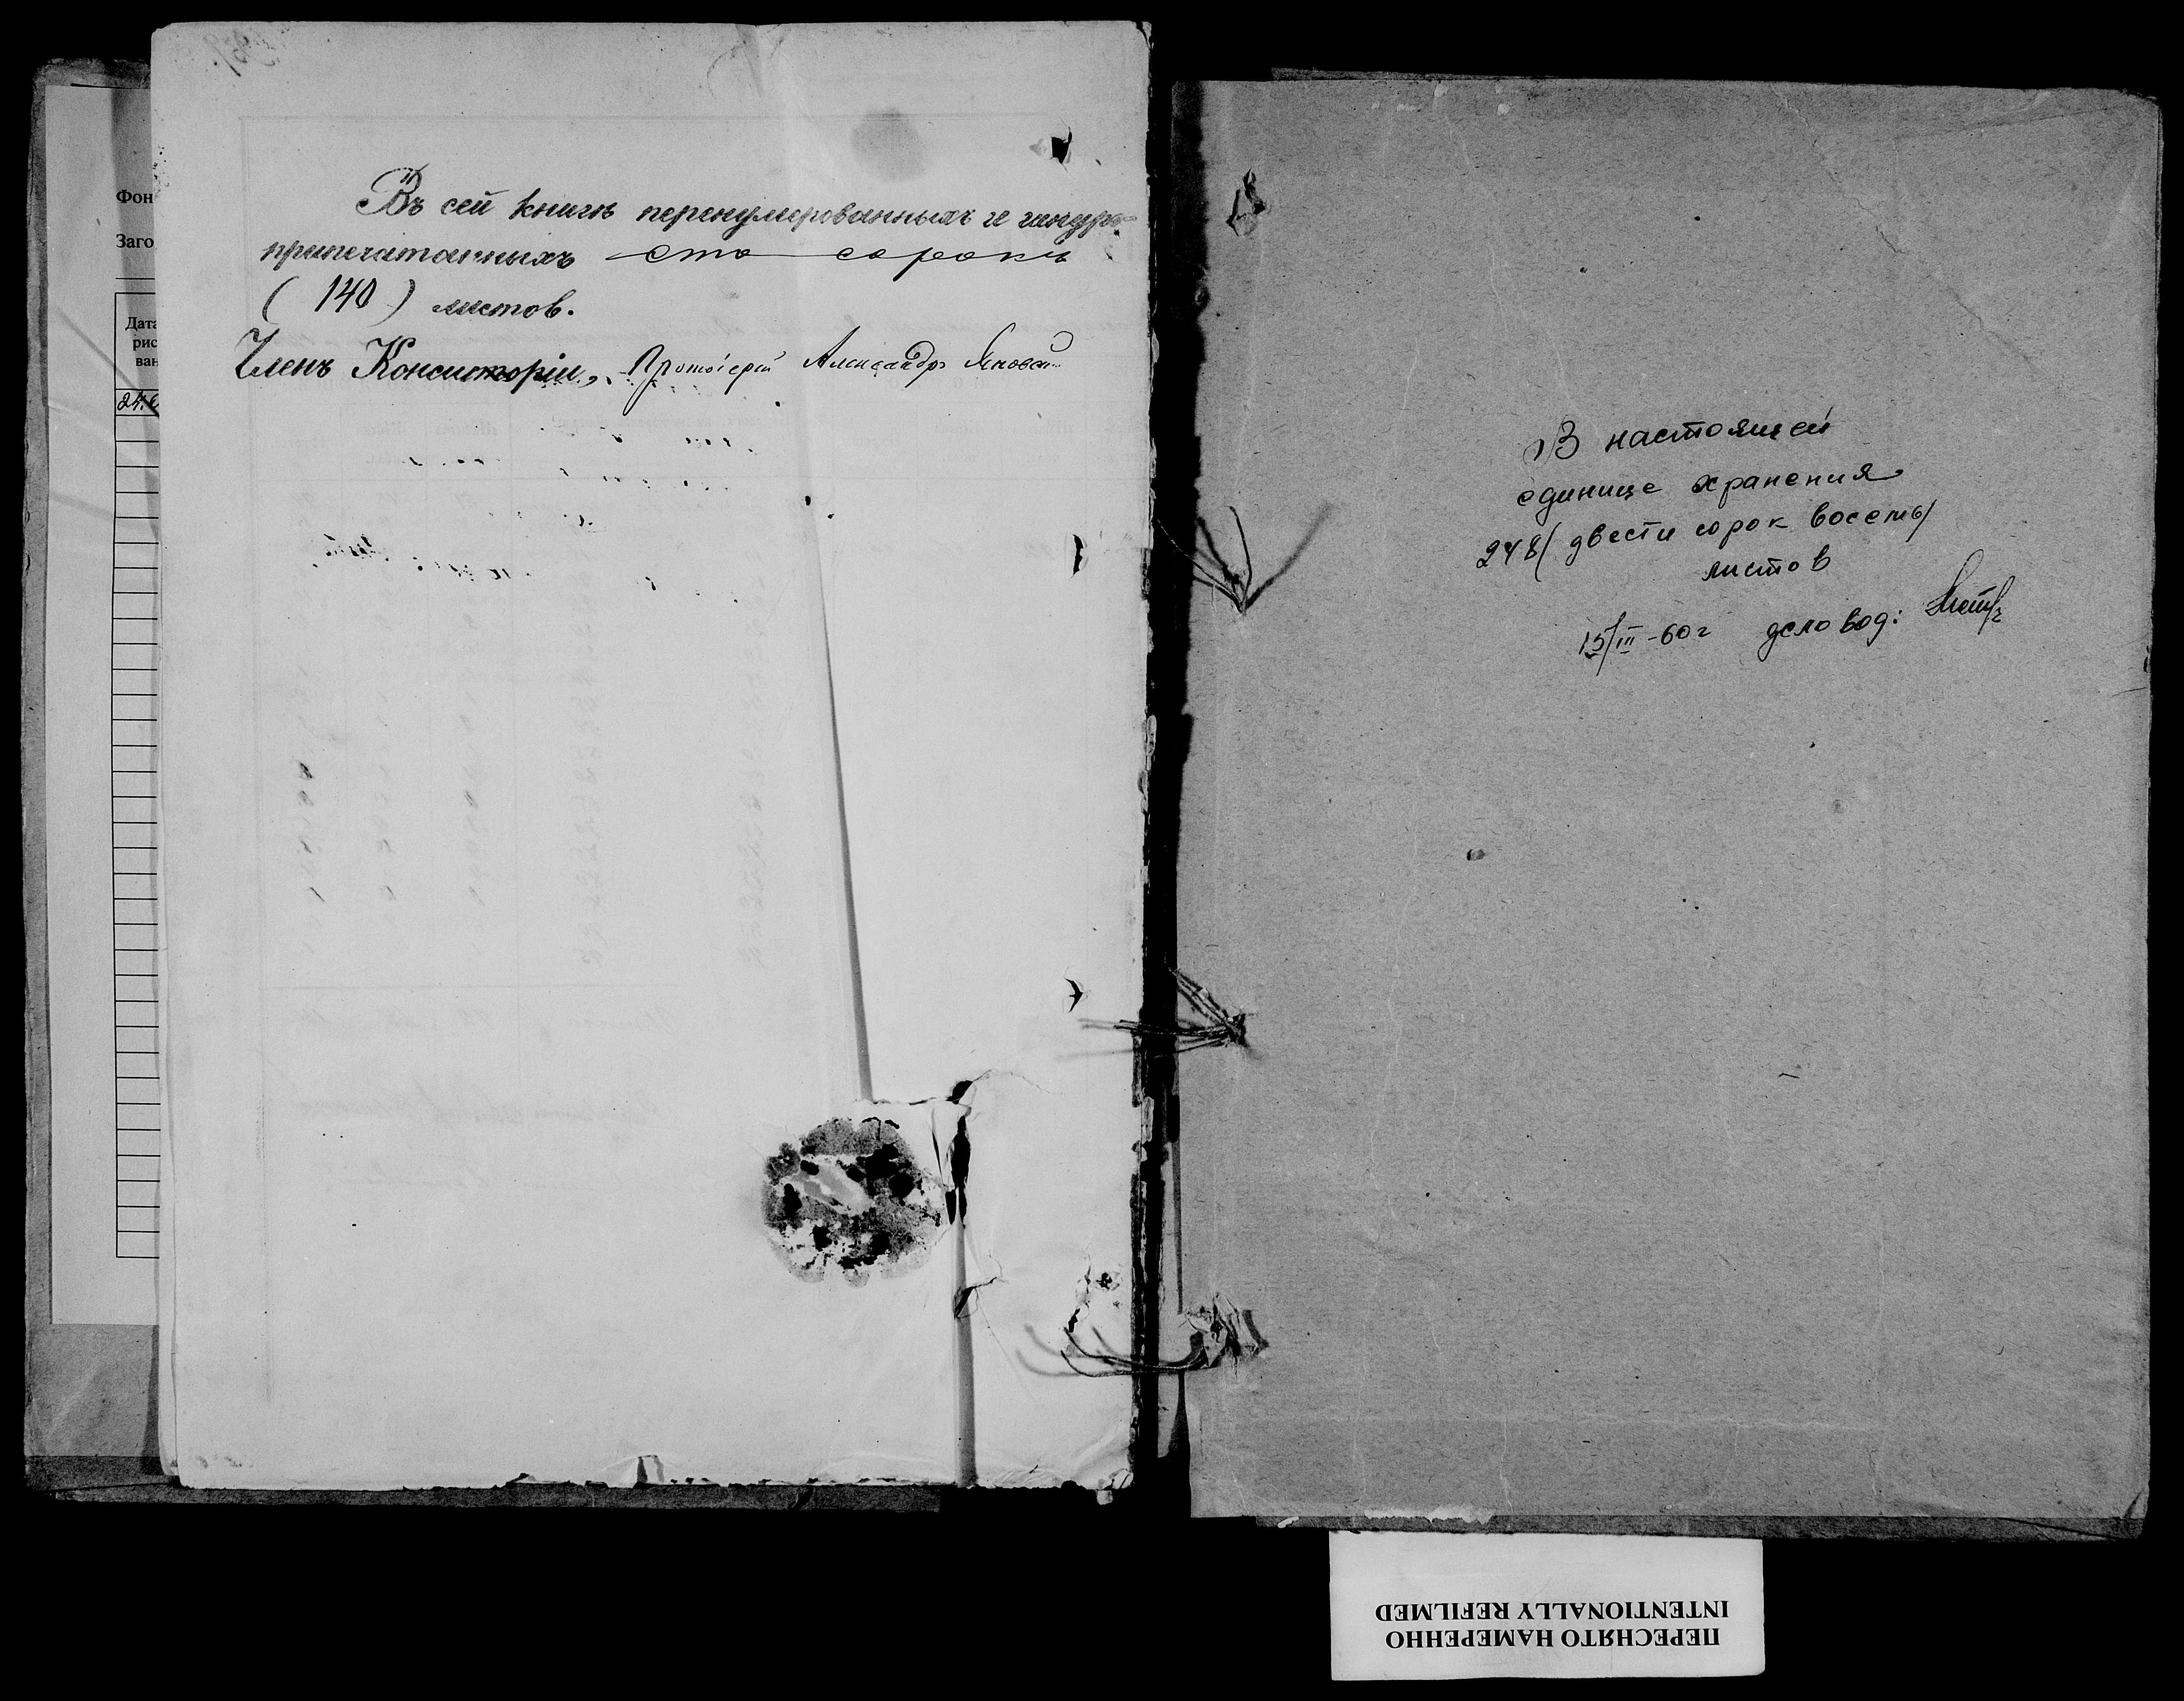 Фон
Заго
Дата
рис
ван
24.
Въ сей книгѣ перенумерованныхъ и шнуро-
припечатанныхъ сто сорокъ
(140) листов.
Членъ Консисторіи, Протоіерей Александръ
В настоящей
единице хранения
248 (двести сорок восемь)
листов
15/III-60г деловод:
ПЕРЕСНЯТО НАМЕРЕННО
INTENTIONALLY REFILMED